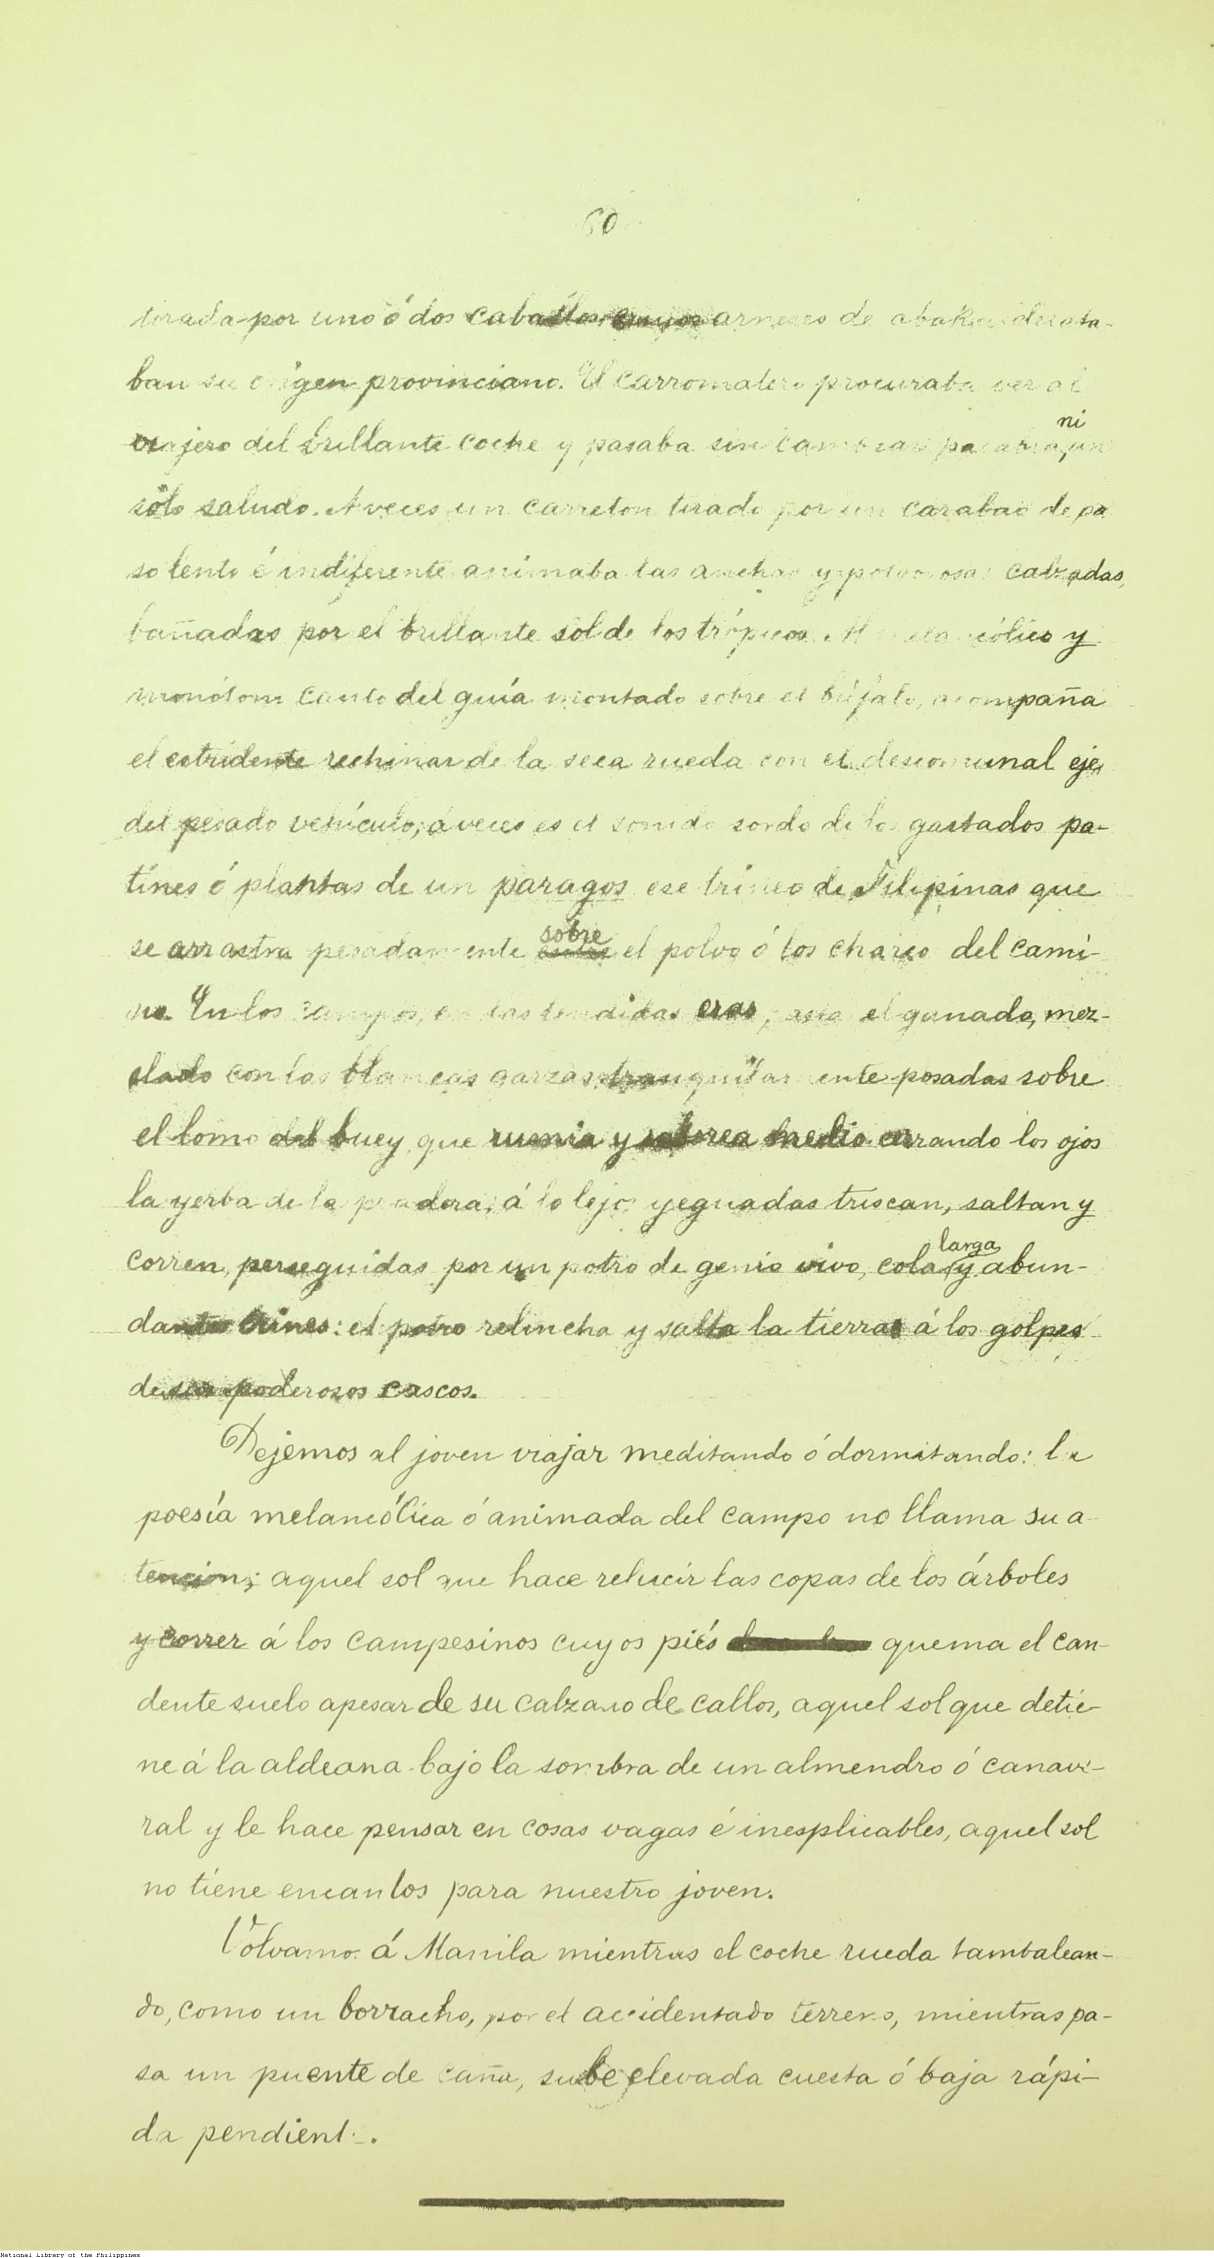 60
tirada por uno ó dos caballos, cuyos arneses de abaká delata-
ban su origen provinciano. El carromatero procuraba ver al
viajero del brillante coche y pasaba sin cambiar palabra, ni un
sólo saludo. A veces un carreton tirado por un carabao de pa
so lento é indiferente animaba las anchas y polvorosas calzadas,
bañadas por el brillante sol de los trópicos. Al melancólico y
monótono canto del guía montado sobre el búfalo, acompaña
el estridente rechinar de la seca rueda con el descomunal eje
del pesado vehículo; á veces es el sonido sordo de los gastados pa-
tines ó plantas de un paragos ese trineo de Filipinas que
se arrastra pesadamente sobre el polvo ó los charco del cami-
no. En los campos, en las tendidas eras, pasta el ganado, mez-
clado con las blancas garzas tranquilamente posadas sobre
el lomo del buey que rumia y saborea medio cerrando los ojos
la yerba de la pradera; á lo lejos yeguadas triscan, saltan y
corren, perseguidas por un potro de genio vivo, cola larga y abun-
dantes crines: el potro relincha y salta la tierra á los golpes
de sus poderosos cascos.
Dejemos al joven viajar meditando ó dormitando: la
poesía melancólica ó animada del campo no llama su a-
tencion; aquel sol que hace relucir las copas de los árboles
y correr á los campesinos cuyos piés quema el can-
dente suelo apesar de su calzado de callos, aquel sol que detie-
ne á la aldeana bajo la sombra de un almendro ó canave-
ral y le hace pensar en cosas vagas é inesplicables, aquel sol
no tiene encantos para nuestro joven.
Volvamos á Manila mientras el coche rueda tambalean-
do, como un borracho, por el accidentado terreno, mientras pa-
sa un puente de caña, sube elevada cuesta ó baja rápi-
da pendiente.
National Library of the Philippines